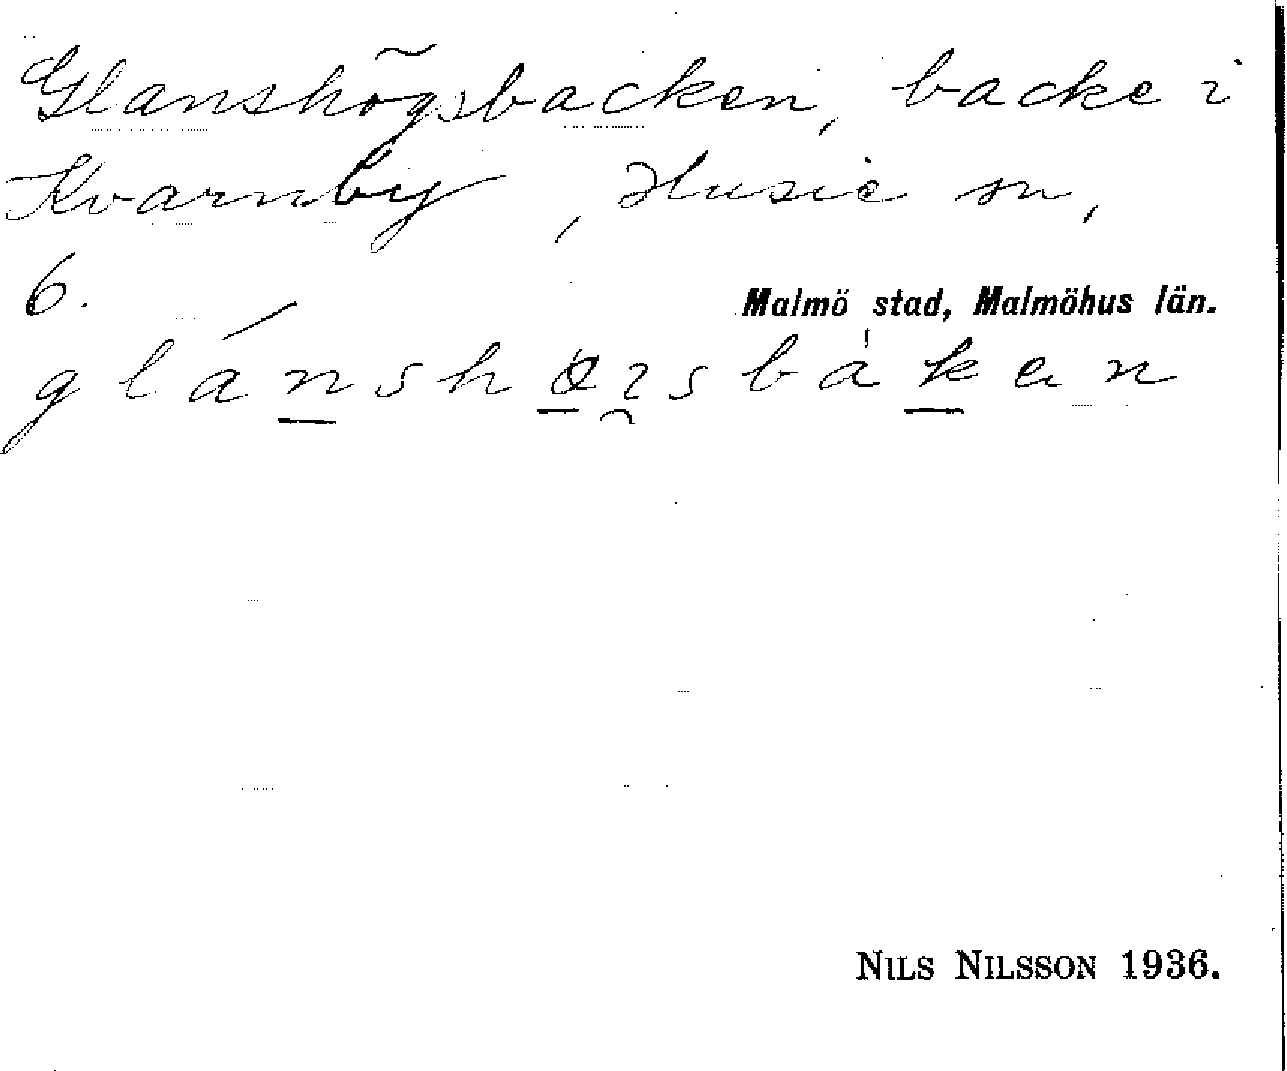 Glanshögsbacken, backe i
Kvarnby, Husie sn,
6.
Malmö stad, Malmöhus län.
NILS NILSSON 1936.